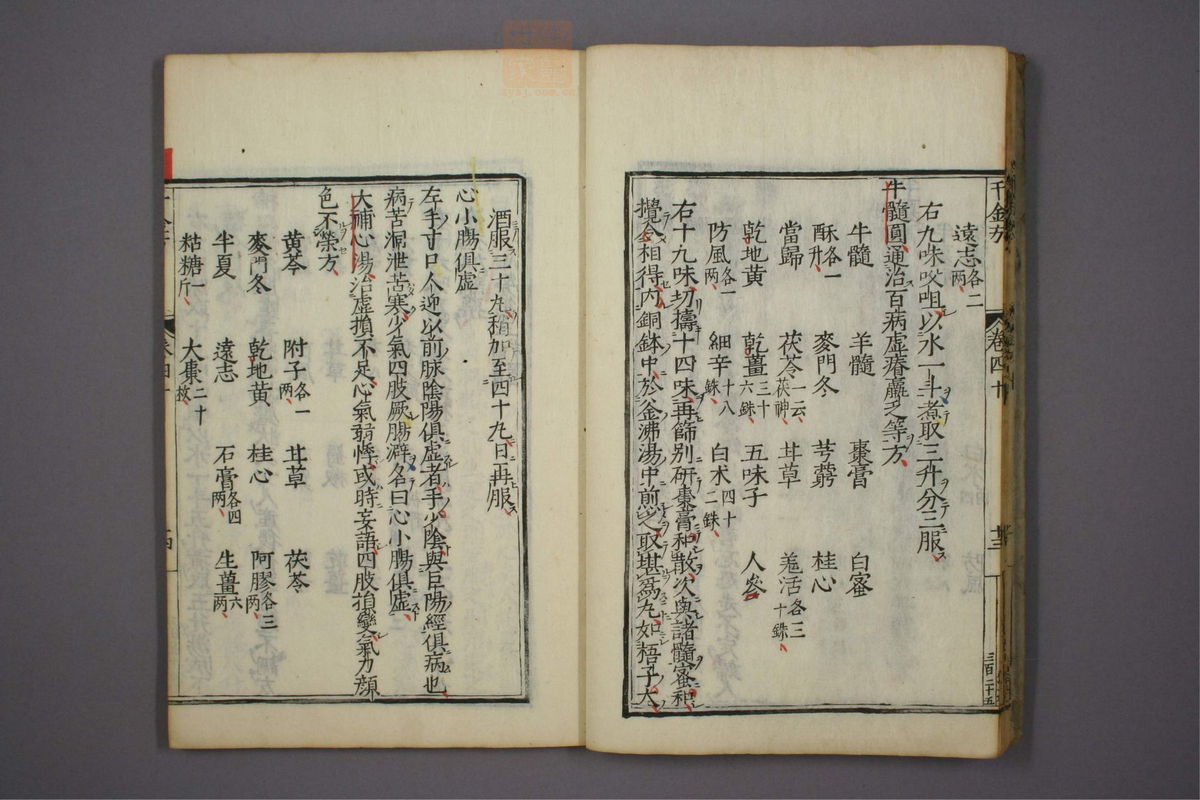 千金方 卷四十 三百二十五
遠志各二兩
右九味㕮咀以水一斗煮取三升分三服
牛髓圓通治百病虛瘠羸乏等方
牛髓 羊髓 棗膏 白蜜
酥各一升 麥門冬 芎藭 桂心
當歸 茯苓一云茯神 甘草 羗活各三十銖
乾地黃 乾薑三十六銖 五味子 人參
防風各一兩 細辛十八銖 白朮四十二銖
右十九味切擣十四味再篩別研棗膏和散次與諸髓蜜和
攪令相得內銅鉢中於釜沸湯中煎之取堪爲丸如梧子大
酒服三十丸稍加至四十丸日再服
心小腸俱虛
左手寸口人迎以前脉陰陽俱虛者手少陰與巨陽經俱病也
病苦洞泄苦寒少氣四肢厥腸澼名曰心小腸俱虛
大補心湯治虛損不足心氣弱悸或時妄語四肢損變氣力顏
色不榮方
黃芩 附子各一兩 甘草 茯苓
麥門冬 乾地黃 桂心 阿膠各三兩
半夏 遠志 石膏各四兩 生薑六兩
粘糖一斤 大棗二十枚